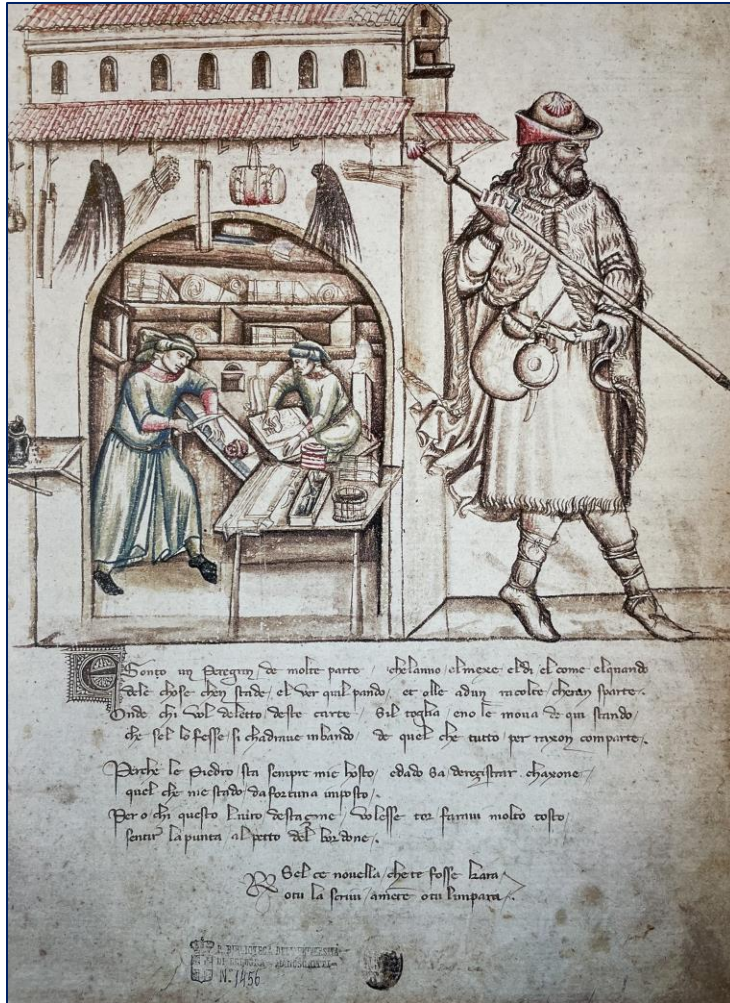 E Gonço un Peregrin de molte parte / chelanno / elmexe eldi el come elquando
dele chose chen stride / el ver quil pando / et olle adun racolte cheran sparte .
Onde chi vol deletto deste carte / Sil toglia / eno le mova de qui stando /
che sel lo fesse / si chadrave inbando / de quel che tutto per raxon comparte .
Perche le Piedro sta sempre mie hosto / edado Sa deregistrar chaxone /
quel che me stado dafortuna imposto .
Per o chi questo Livro destagme volesse tor furavi molto tosto
sentir la punta al petto del bordone .
R Sel ce novella chete fosse kara
otu la scrivi amete otu limpara
R. BIBLIOTECA DELL'UNIVERSITÀ
DI BOLOGNA MANOSCRITTI
N. 1456